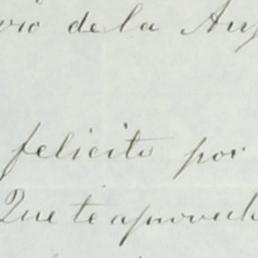 de la
felicito por
Que te aprovech